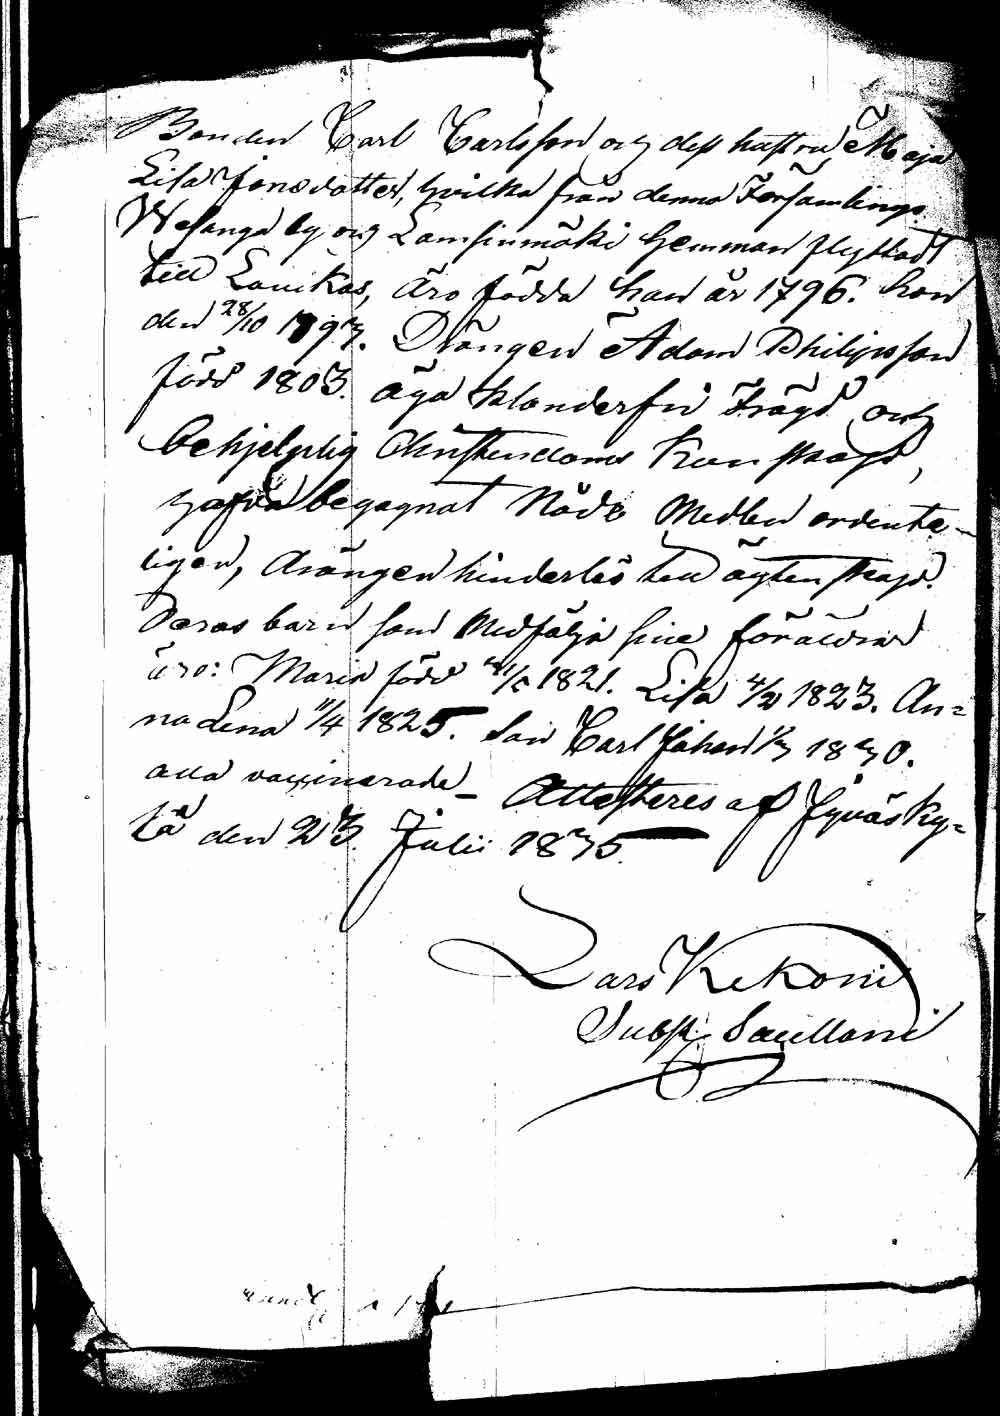 Bonden Carl Carlsson och dess hustru Maja
Lisa Jonsdotter, hvilka från denna Församlings
Wesanga by och Lamsinmäki hemman flyttadt
till Laukas, äro födda han år 1796. hon
den 28/10 1797. Drängen Adam Philipsson
född 1803. äga klanderfri Frägd och
behjelplig Christendoms Kunskap,
hafva begagnat Nåde Medlen ordente-
ligen, drängen hinderlös till ägtenskap.
Deras barn som Medfölja sine föräldrar
äro: Maria född 1821. Lisa 4/2 1823. An=
na Lena 11/4 1825. Son Carl Johan 1830.
alla vaccinerade – Attesteres af Jyväsky=
lä den 23 Julii 1835.
Lars Kekoni
Subst. Sacellani